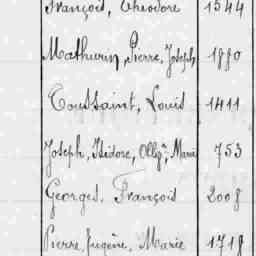 François, Théodore 1544
Mathurin, Pierre, Joseph 1880
Toussaint, Louis 1411
Joseph, Isidore, Marie 753
Georges, François 2008
Pierre, Eugène, Marie 1718